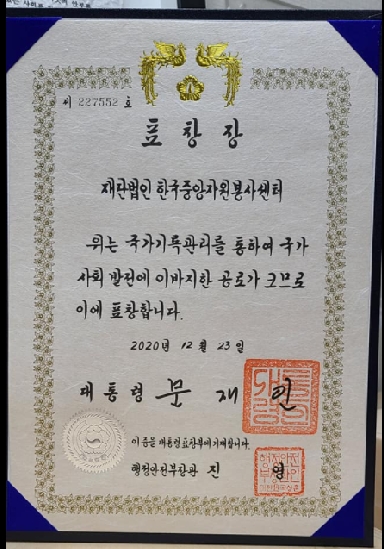 제 227552 호
표 창 장
재단법인 한국중앙자원봉사센터
위는 국가기록관리를 통하여 국가
사회 발전에 이바지한 공로가 크므로
이에 표창합니다.
2020년 12월 23일
대통령 문 재 인
이 증을 대통령표창부에 기재합니다.
행정안전부장관 진 영